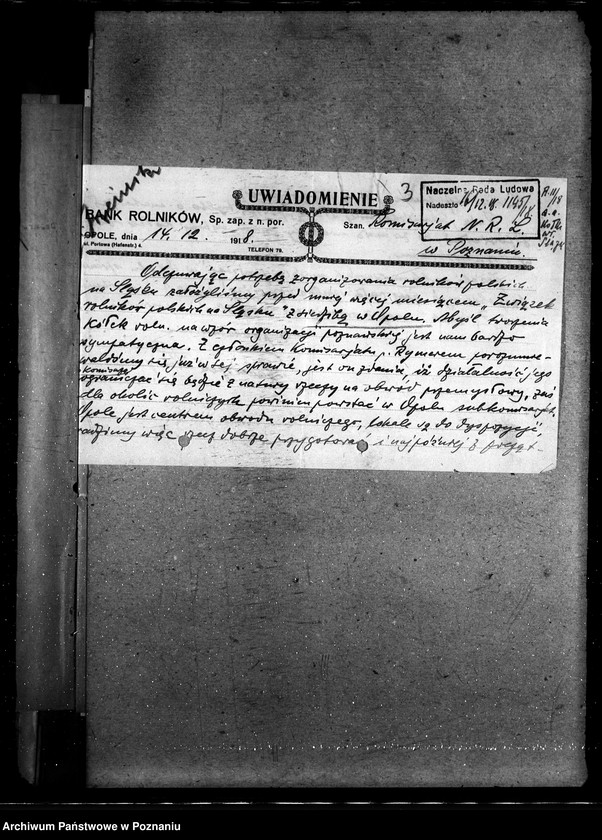 3
UWIADOMIENIE
Naczelna Rada Ludowa
Nadeszło 16/12.18 1145/
BANK ROLNIKÓW, Sp. zap. z n. por.
Szan. Komisarjat N. R. L.
OPOLE, dnia 14. 12. 1918.
ul. Portowa (Hafenstr.) 4.
TELEFON 79.
w Poznaniu.
Odczuwając potrzebę zorganizowania rolników polskich
na Śląsku założyliśmy przed mniej więcej miesiącem, "Związek
rolników polskich na Śląsku" z siedzibą w Opolu. Myśl tworzenia
Kółek roln. na wzór organizacji poznańskiej jest nam bardzo
sympatyczna. Z członkiem Komisarjatu p. Rymerem porozumie-
waliśmy się już w tej sprawie, jest on zdania, iż działalność jego
komisarj.
ograniczać się będzie z natury rzeczy na obwód przemysłowy, zaś
dla okolic rolniczych powinien powstać w Opolu subkomisarjat.
Opole jest centrem obwodu rolniczego, lokale są do dyspozycji,
radzimy więc rzecz dobrze przygotować i najpóźniej z początk-
Archiwum Państwowe w Poznaniu